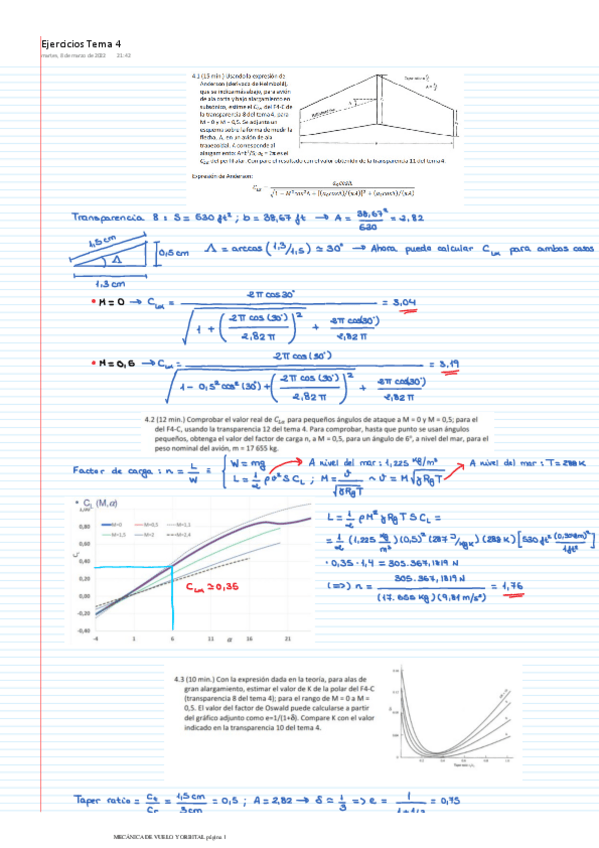 Ejercicios Tema 4
martes, 8 de marzo de 2022 21:42
4.1 (15 min.) Usando la expresión de
Anderson (derivada de Helmbold),
que se indica más abajo, para avión
de ala recta y bajo alargamiento en
subsónico, estime el C_Lα del F4-C de
la transparencia 8 del tema 4, para
M = 0 y M = 0,5. Se adjunta un
esquema sobre la forma de medir la
flecha, Λ, en un avión de ala
trapezoidal. A corresponde al
alargamiento: A=b²/S; a₀ = 2π es el
C_Lα del perfil alar. Compare el resultado con el valor obtenido de la transparencia 11 del tema 4.
Expresión de Anderson:
C_Lα = a₀cosΛ / √(1 − M²cos²Λ + [(a₀cosΛ)/(πA)]² + (a₀cosΛ)/(πA)
Transparencia 8: S = 530 ft²; b = 38,67 ft → A = 38,67² / 530 = 2,82
1,5 cm
0,5 cm
Λ
1,3 cm
Λ = arccos (1,3/1,5) ≃ 30° → Ahora puedo calcular C_Lα para ambos casos
• M=0 → C_Lα = 2π cos 30° / √(1 + (2π cos (30°) / 2,82 π)² + 2π cos(30°) / 2,82 π = 3,04
• M=0,5 → C_Lα = 2π cos (30°) / √(1 − 0,5² cos² (30°) + (2π cos (30°) / 2,82 π)² + 2π cos(30°) / 2,82 π = 3,19
4.2 (12 min.) Comprobar el valor real de C_Lα para pequeños ángulos de ataque a M = 0 y M = 0,5; para el
del F4-C, usando la transparencia 12 del tema 4. Para comprobar, hasta que punto se usan ángulos
pequeños, obtenga el valor del factor de carga n, a M = 0,5, para un ángulo de 6°, a nivel del mar, para el
peso nominal del avión, m = 17 655 kg.
Factor de carga: n = L/W = { W = mg → A nivel del mar: 1,225 kg/m³ → A nivel del mar: T = 288 K
L = 1/2 ρ v² S C_L ; M = v / √(γ Rg T) ~ v = M √(γ Rg T)
• C_L (M,α)
1,00
0,80
0,60
0,40
0,20
0,00
-0,20
-0,40
M=0 M=0,5 M=1,1
M=1,5 M=2 M=2,4
C_L
C_Lα ≃ 0,35
-4 1 6 11 16 21
α
L = 1/2 ρ M² γ Rg T S C_L =
= 1/2 (1,225 kg/m³) (0,5)² (287 J/kg K) (288 K) [530 ft² (0,308m)² / 1ft²]
· 0,35 · 1,4 = 305.367,1819 N
(=>) n = 305.367,1819 N / (17.655 kg) (9,81 m/s²) = 1,76
4.3 (10 min.) Con la expresión dada en la teoría, para alas de
gran alargamiento, estimar el valor de K de la polar del F4-C
(transparencia 8 del tema 4); para el rango de M = 0 a M =
0,5. El valor del factor de Oswald puede calcularse a partir
del gráfico adjunto como e=1/(1+δ). Compare K con el valor
indicado en la transparencia 10 del tema 4.
Taper ratio = C_t / C_r = 1,5 cm / 3 cm = 0,5 ; A = 2,82 → δ ≃ 1/3 => e = 1 / 1+1/3 = 0,75
MECÁNICA DE VUELO Y ORBITAL página 1